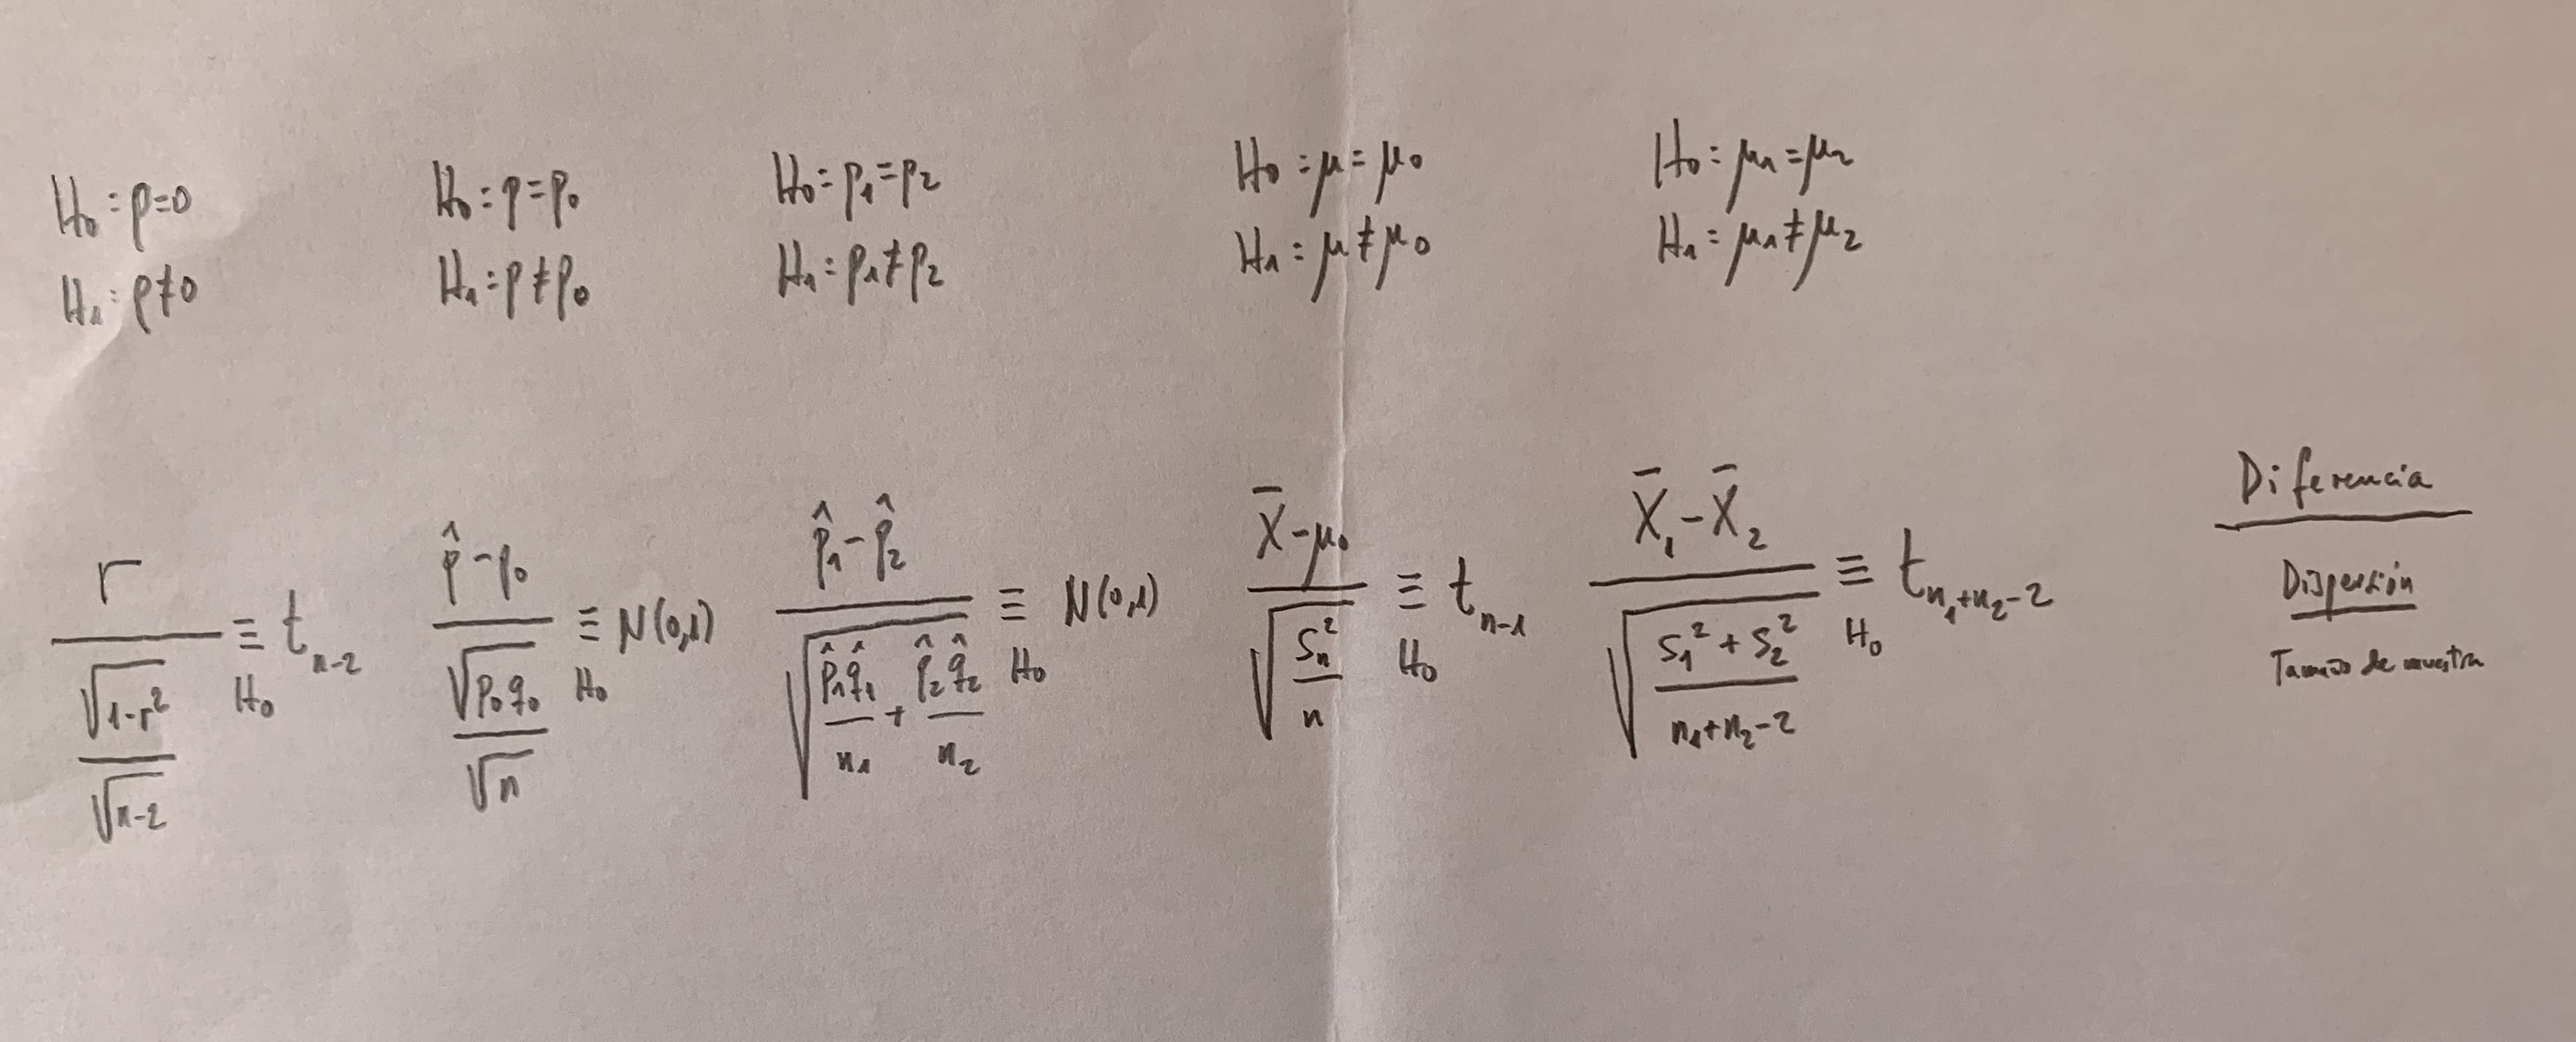 H₀: ρ=0
H₁: ρ≠0
H₀: p=p₀
H₁: p≠p₀
H₀: p₁=p₂
H₁: p₁≠p₂
H₀: μ=μ₀
H₁: μ≠μ₀
H₀: μ₁=μ₂
H₁: μ₁≠μ₂
r / (√(1-r²) / √(n-2)) ≡ t_{n-2}
H₀
(p̂-p₀) / (√(p₀q₀) / √n) ≡ N(0,1)
H₀
(p̂₁-p̂₂) / √(p̂₁q̂₁/n₁ + p̂₂q̂₂/n₂) ≡ N(0,1)
H₀
(X̄-μ₀) / √(Sₙ²/n) ≡ t_{n-1}
H₀
(X̄₁-X̄₂) / √((S₁²+S₂²)/(n₁+n₂-2)) ≡ t_{n₁+n₂-2}
H₀
Diferencia
Dispersión
Tamaño de muestra